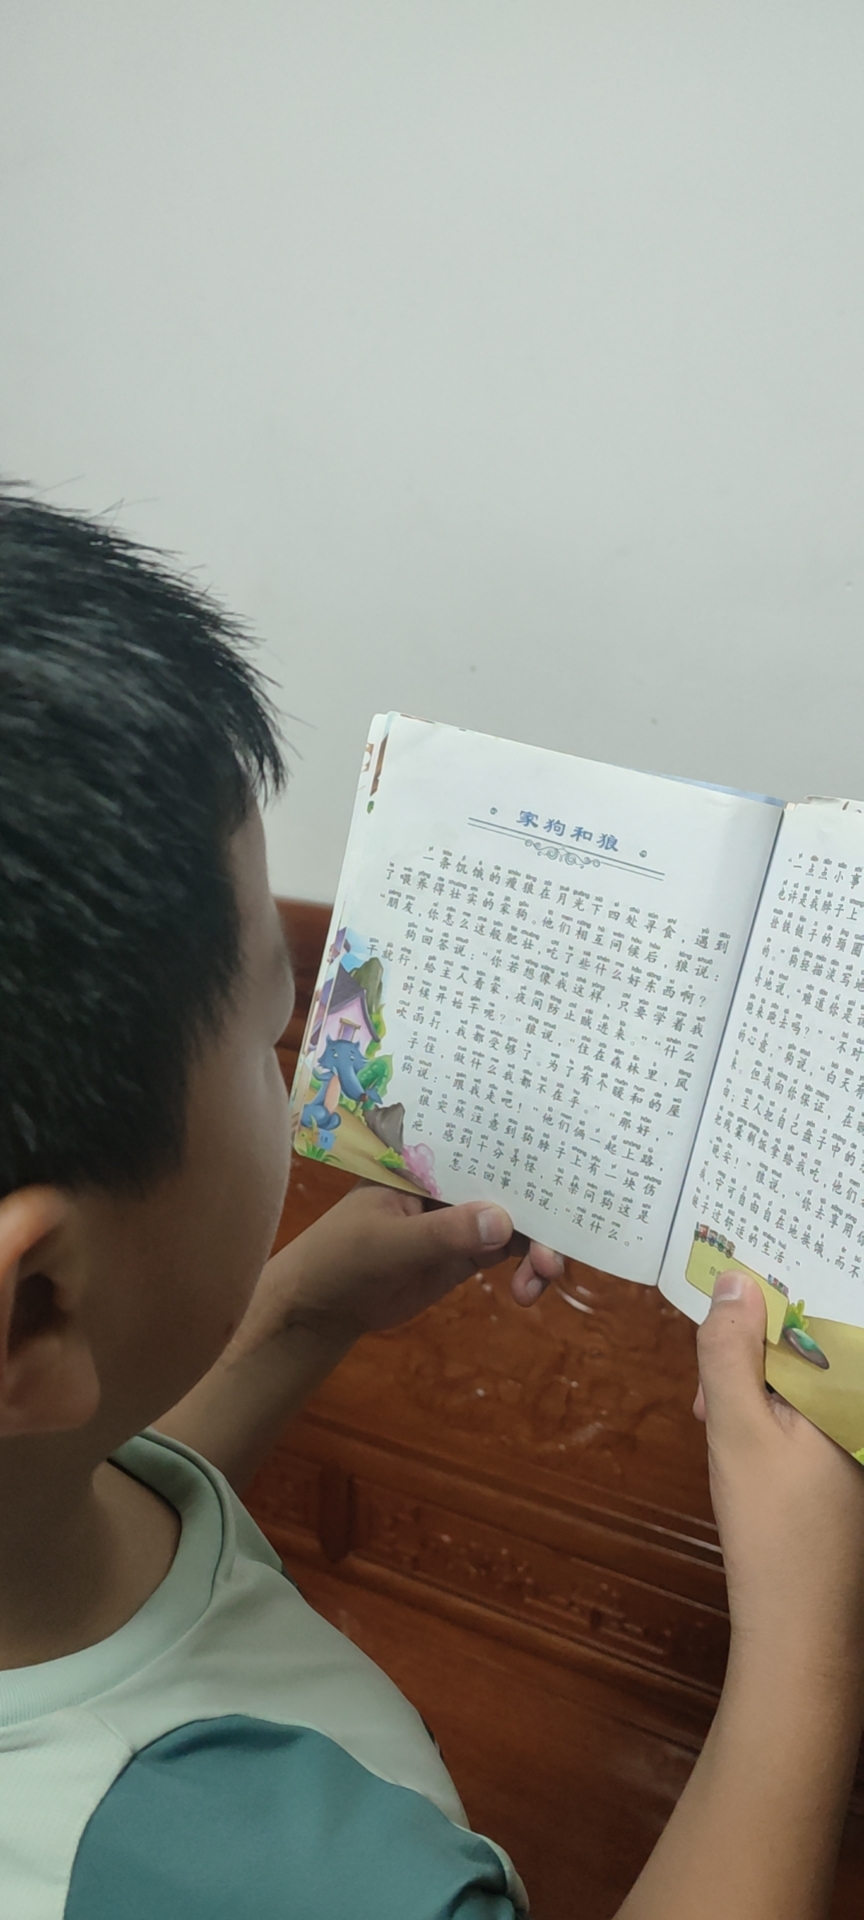 家狗和狼
一条饥饿的瘦狼在月光下四处寻食，遇到
了喂养得壮实的家狗。他们相互问候后，狼说：
“朋友，你怎么这般肥壮，吃了些什么好东西啊？”
狗回答说：“你若想像我这样，只要学着我
干就行，给主人看家，夜间防止贼进来。”“什么
时候开始干呢？”狼说，“住在森林里，风
吹雨打，我都受够了。为了有个暖和的屋
子住，做什么我都不在乎。”“那好，”
狗说：“跟我走吧！”他们俩一起上路，
狼突然注意到狗脖子上有一块伤
疤，感到十分奇怪，不禁问狗这是
怎么回事。狗说：“没什么。”
“一点点小事
也许是我脖子上
拴铁链子的颈圈
的。”狗轻描淡写地
奇地说，“难道你是说
跑来跑去吗？”“不对
的心意，”狗说，“白天有
来，但我向你保证，在晚
由；主人把自己盘子中的
把残羹剩饭拿给我吃，他们
“晚安！”狼说，“你去享用你
我，宁可自由自在地挨饿，而不
链子过舒适的生活。”